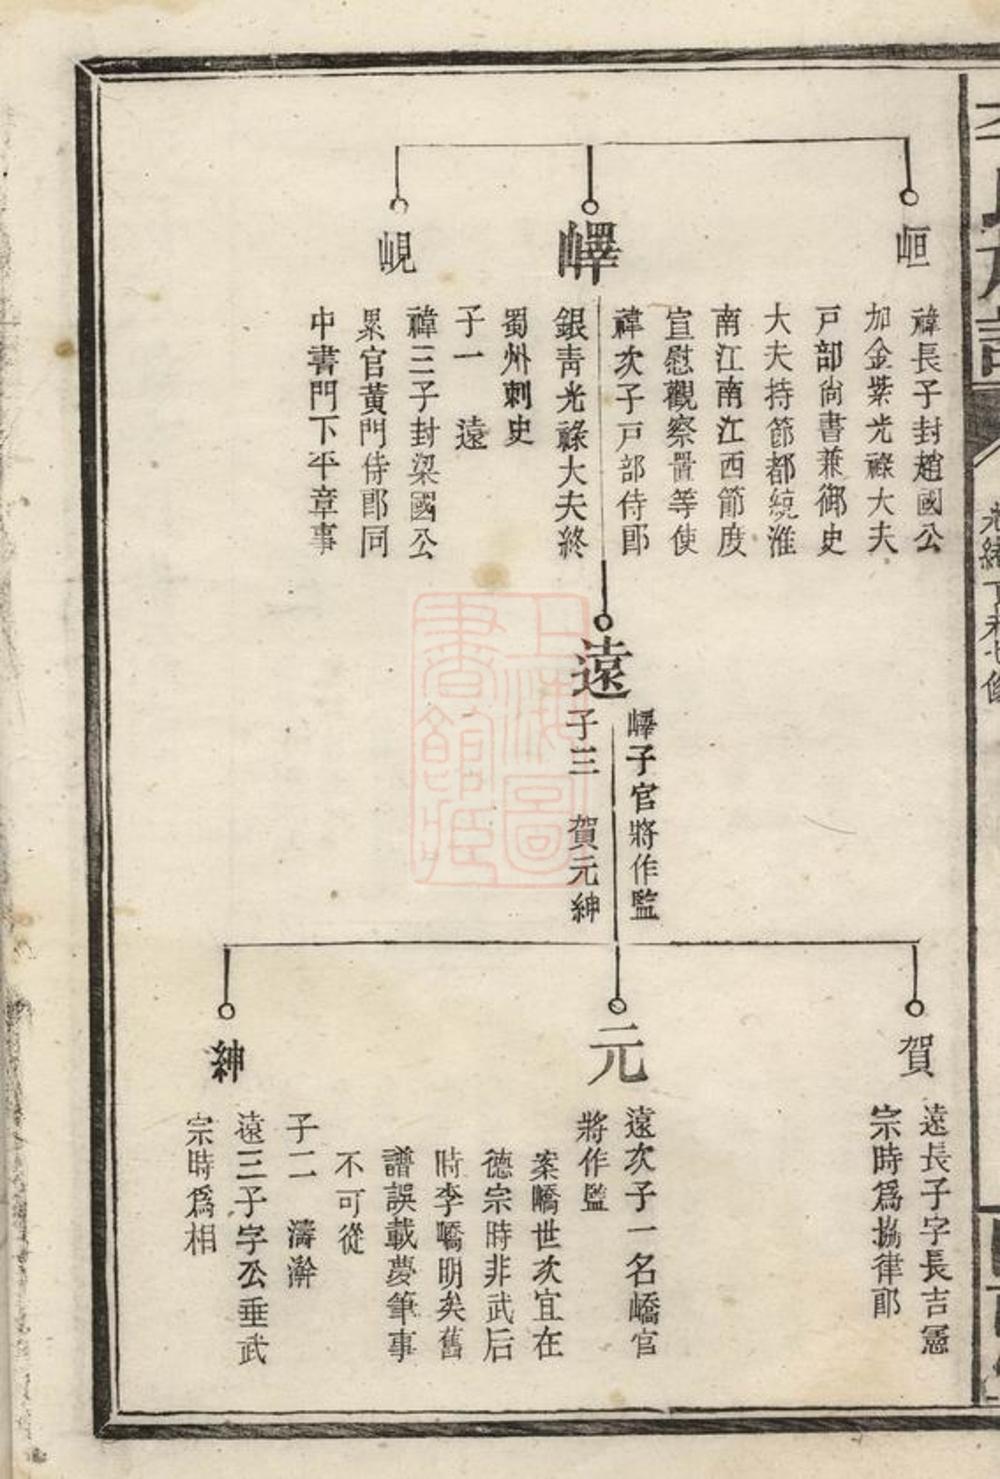 峘
禕長子封趙國公
加金紫光祿大夫
戸部尙書兼御史
大夫持節都統淮
南江南江西節度
宣慰觀察置等使
嶧
禕次子戸部侍郎
銀靑光祿大夫終
蜀州刺史
子一　遠
峴
禕三子封梁國公
累官黃門侍郎同
中書門下平章事
遠
嶧子官將作監
子三　賀元紳
賀
遠長子字長吉憲
宗時爲協律郎
元
遠次子一名嶠官
將作監
案嶠世次宜在
德宗時非武后
時李嶠明矣舊
譜誤載夢筆事
不可從
子二　濤澣
紳
遠三子字公垂武
宗時爲相
上海圖
書館藏